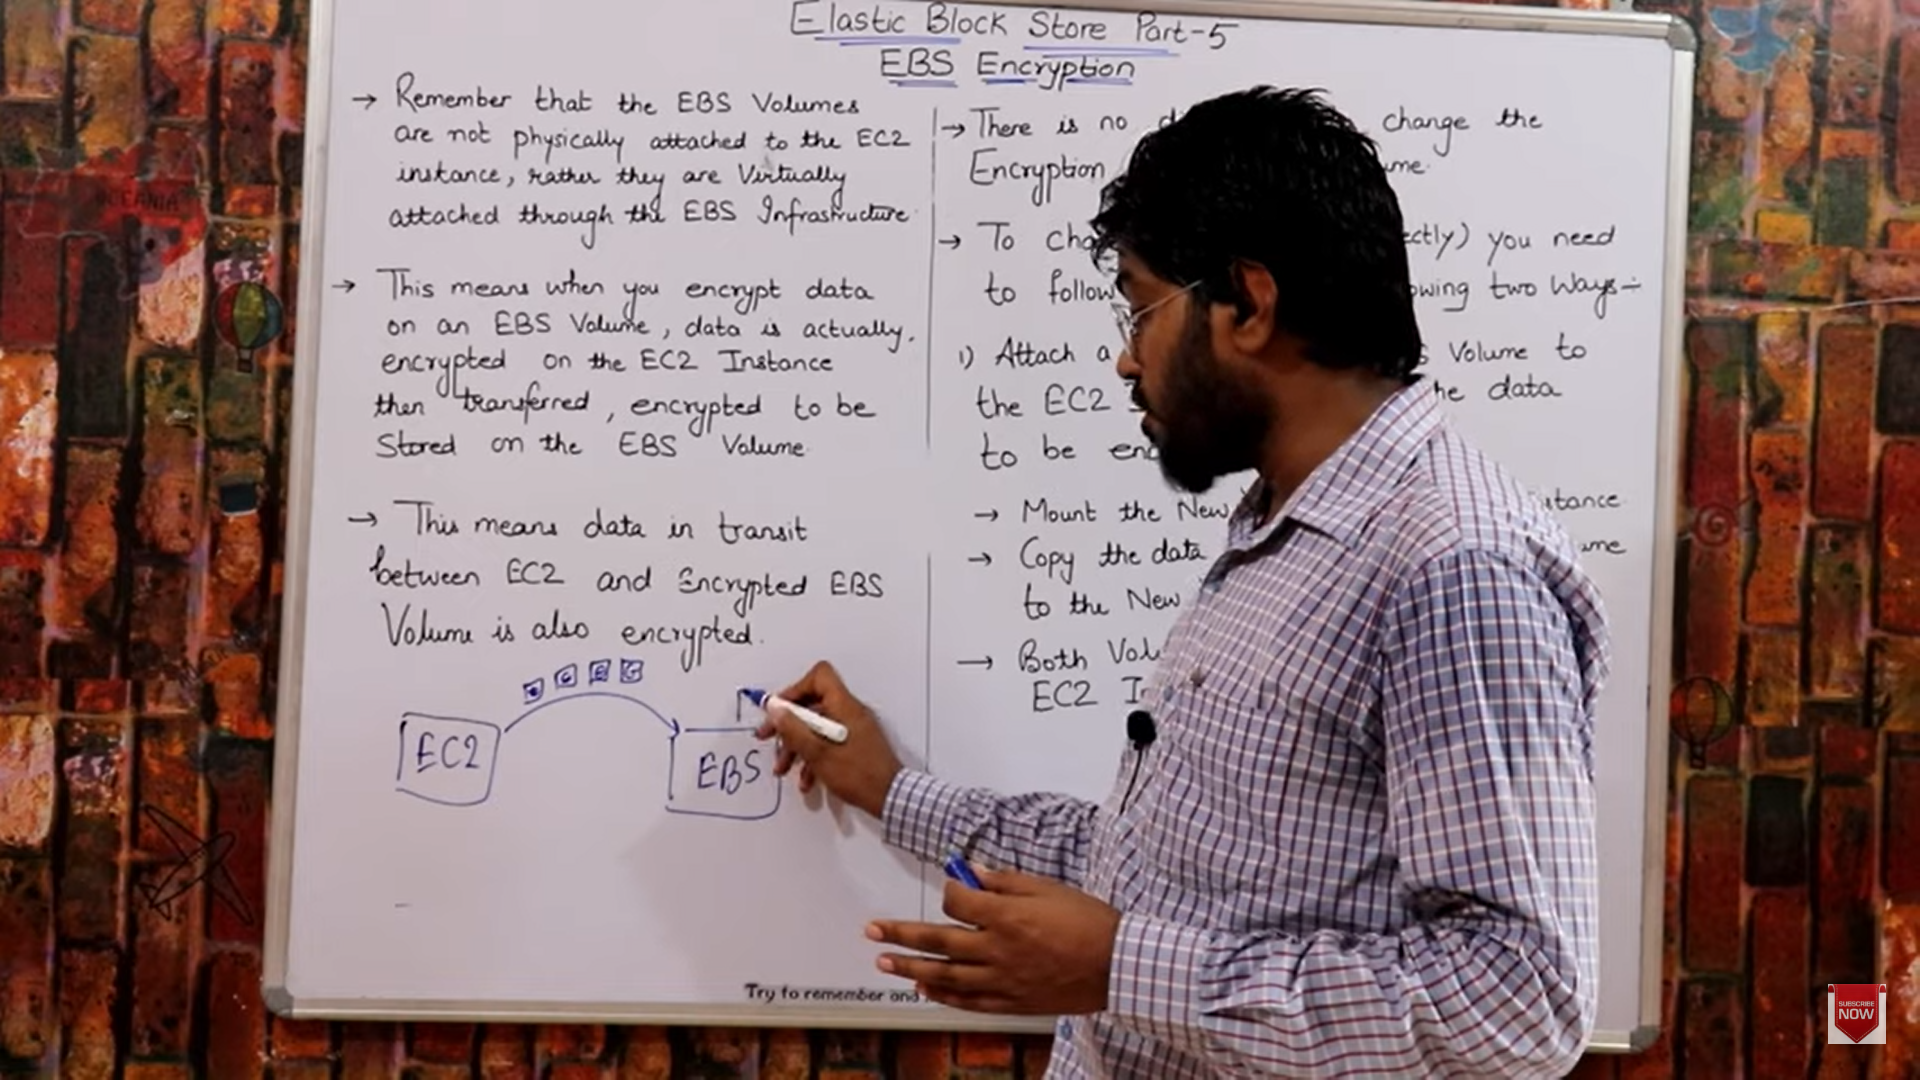 Elastic Block Store Part-5
EBS Encryption
→ Remember that the EBS Volumes
are not physically attached to the EC2
instance, rather they are Virtually
attached through the EBS Infrastructure
→ This means when you encrypt data
on an EBS Volume, data is actually,
encrypted on the EC2 Instance
then transferred, encrypted to be
Stored on the EBS Volume.
→ This means data in transit
between EC2 and Encrypted EBS
Volume is also encrypted.
EC2
EBS
→ There is no change the
Encryption
→ To you need
to follow two Ways:-
1) Attach a Volume to
the EC2 data
to be
→ Mount the New
→ Copy the data
to the New
→ Both
EC2
Try to remember and
SUBSCRIBE
NOW
OCEANIA